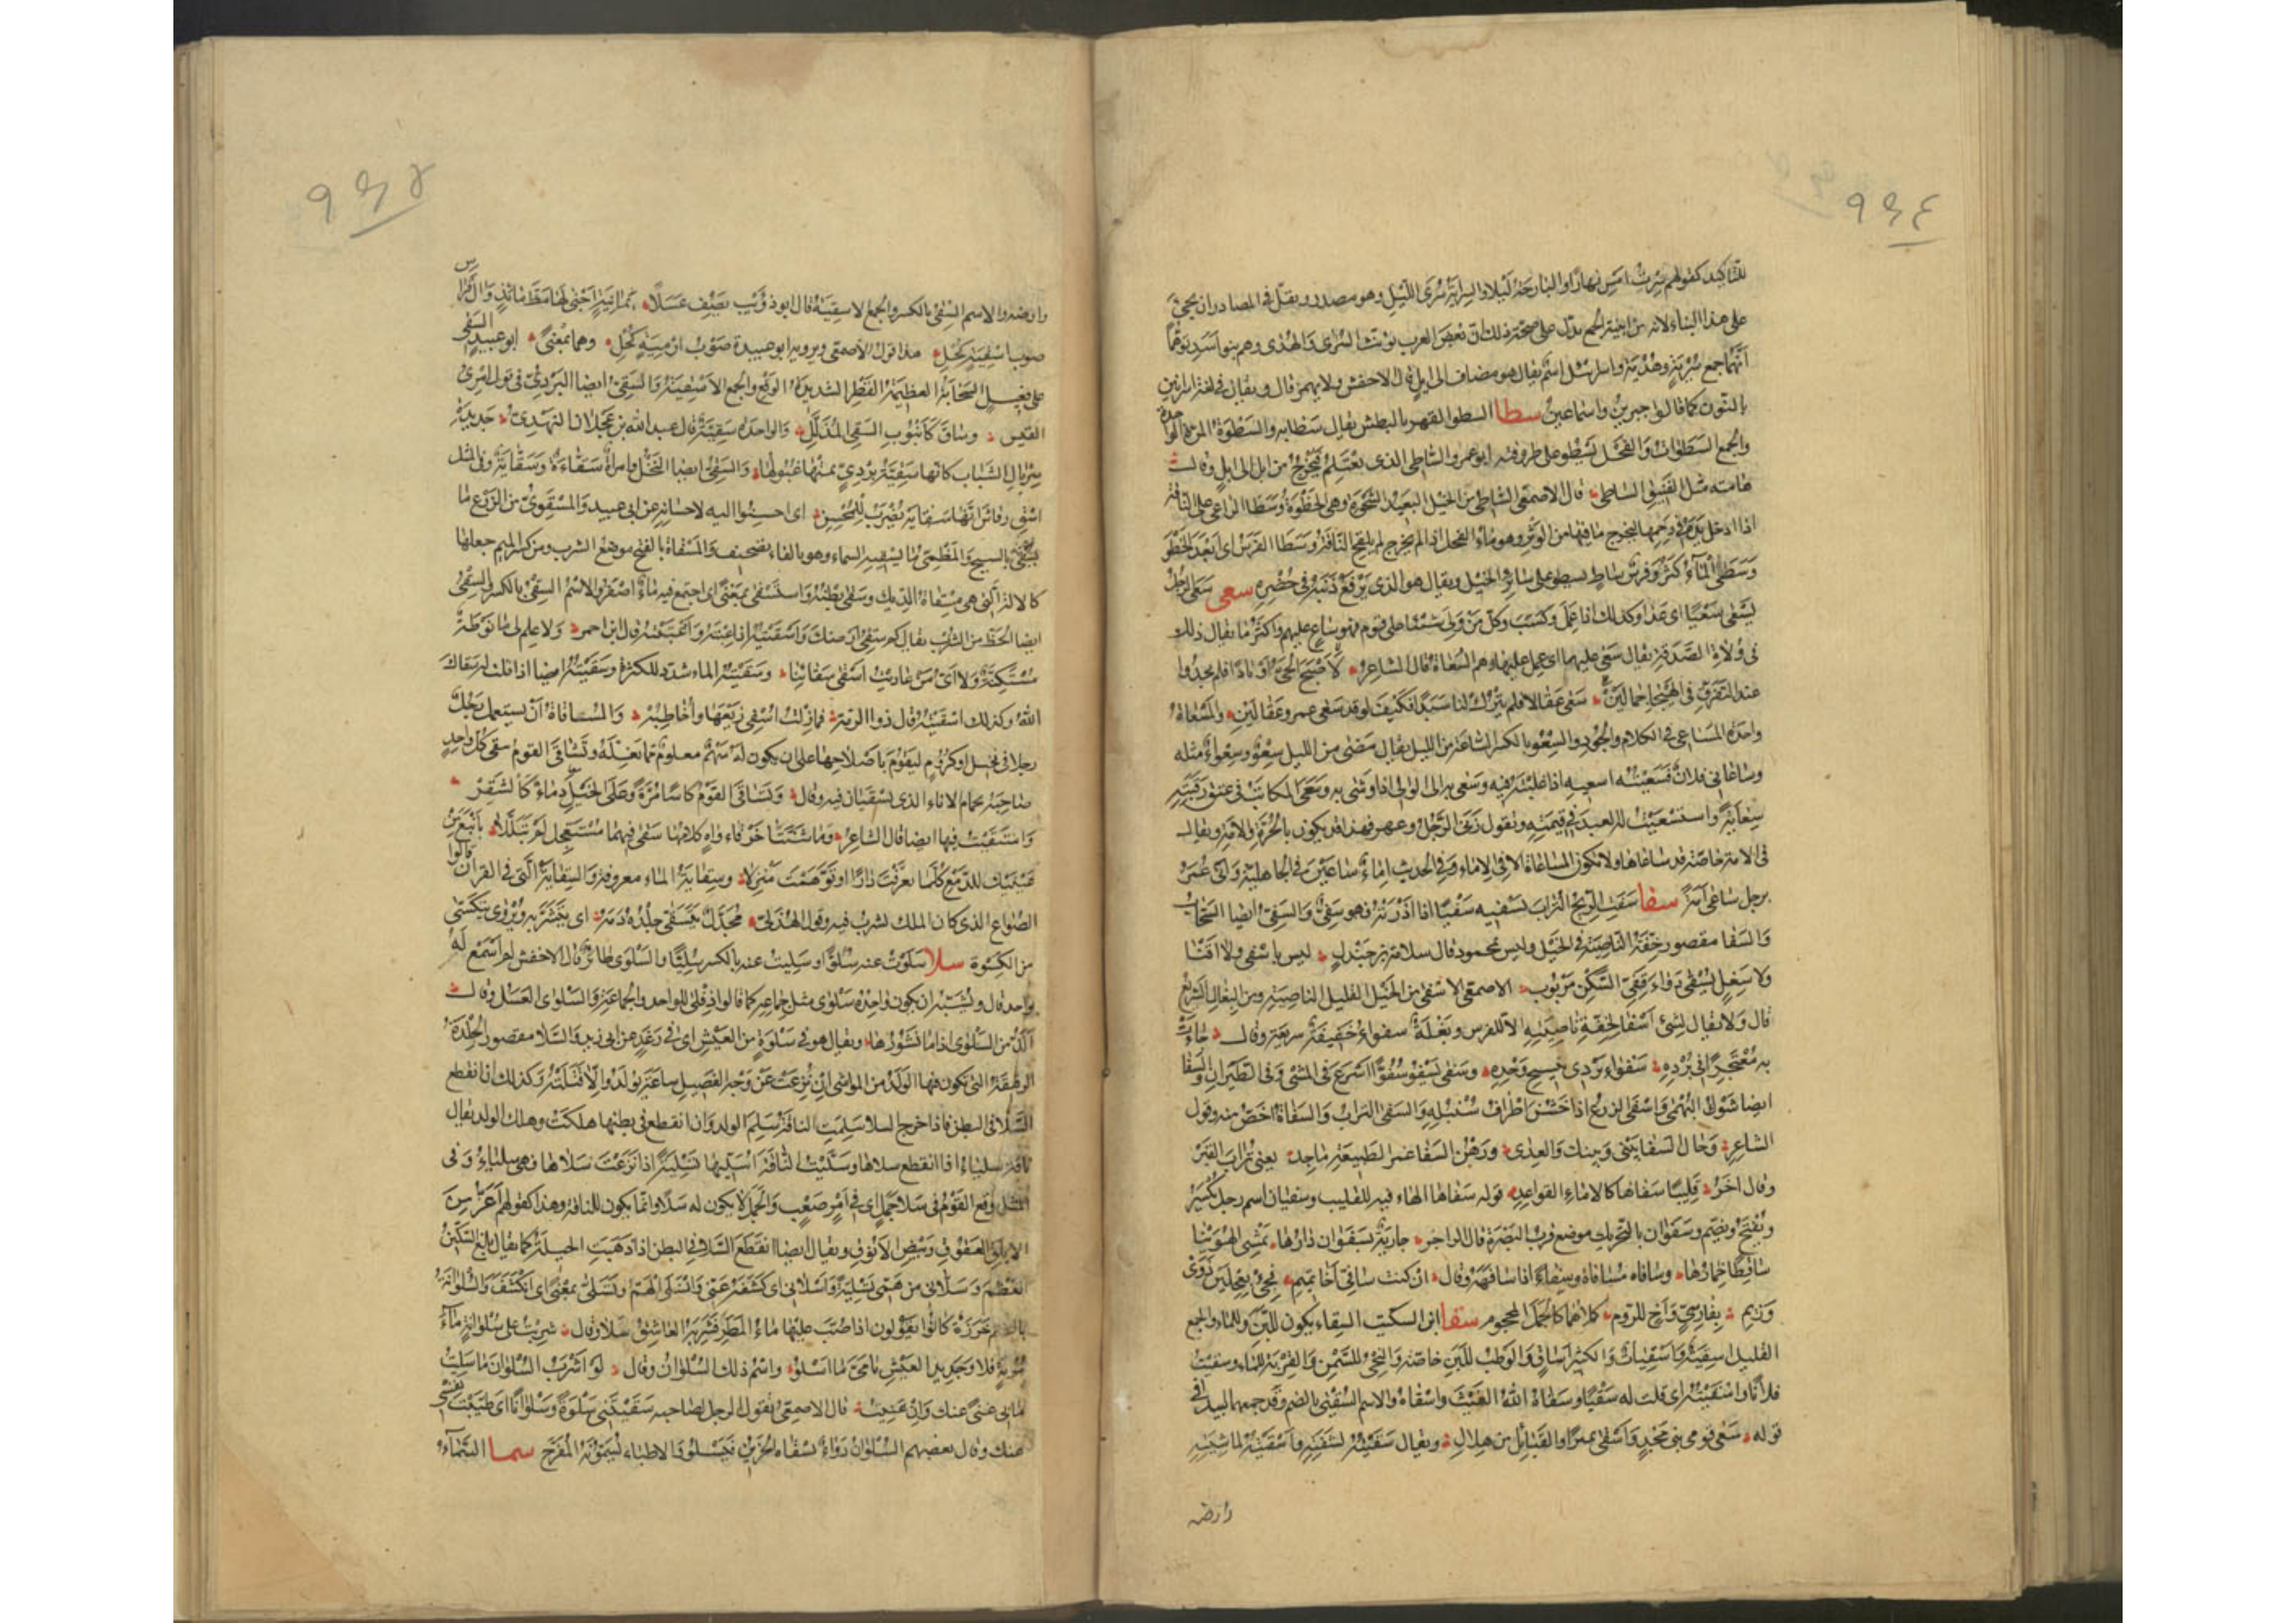 ٩٦٤
للتأكيد كقولهم سرت امس نهارًا والبارحة ليلا والسِراية سُرَى الليل وهو مصدر ويقلّ في المصادر ان يجئ
على هذا البناء لانه من ابنية الجمع يدلّ على صحة ذلك ان بعض العرب يؤنث السُرى والهُدى وهم بنو اسد توهمًا
أنهما جمع سُرْيَةٍ وهُدْيَةٍ واسرئل اسم يقال هو مضاف الى ايل قال الاخفش ولا يهمز قال ويقال في لغة اسرائين
بالنون كما قالوا جبرين واسماعين سطا السطو القهر بالبطش يقال سطا به والسَطْوَة المرة الواحدة
والجمع السَطَوَات والفحل يَسْطو على طروقته ابو عمرو الساطى الذى يغتلم فيخرج من ابل الى ابل وقال
هامته مثل الفنيق الساطى قال الاصمعى الساطى من الخيل البعيد الشحوة وهى الخطوة وسطا الراعى على الناقة
اذا ادخل يده في رحمها ليخرج ما فيها من الوَثْر وهو ماء الفحل اذا لم يخرج لم تلقح الناقة وسطا الفرس اى ابعد الخطو
وسَطَى الماء كثر وفرس ساطٍ يسطو على سائر الخيل ويقال هو الذى يرفع ذنبه في حُضْرِه سعى سعى الرجل
يسعى سَعْيًا اى عدا وكذلك اذا عمل وكسب وكل من ولى شيئا على قوم فهو ساعٍ عليهم واكثر ما يقال ذلك
فى وُلاة الصدقة يقال سعى عليها اى عمل عليها وهم السُعاة قال الشاعر لأصبح الحىّ اوبادًا فلم يجدوا
عند التفرق فى الهيجا جمالين سعى عقالا فلم يترك لنا سبدا فكيف لو قد سعى عمرو عقالين والمسعاة
واحدة المساعى فى الكلام والجود والسِعْو بالكسر الساعة من الليل يقال مضى من الليل سِعْو وسِعواء مثله
وساعانى فلان فسعيته اسعيه اذا غلبته فيه وسعى به الى الوالى اذا وشى به وسعى المكاتب فى عتق رقبته
سِعايَةً واستسعيت العبد فى قيمته وتقول زنى الرجل وعهر فهذا قد يكون بالحرة والامة ويقال
فى الامة خاصة قد ساعاها ولا تكون المساعاة الا فى الاماء وفى الحديث اماء ساعين فى الجاهلية واتى عمر
برجل ساعى امة سفا سفت الريح التراب تسفيه سَفْيًا اذا اذرته فهو سفىّ والسفى ايضا السحاب
والسفا مقصور خفة الناصية فى الخيل وليس بمحمود قال سلامة بن جندل ليس باسفى ولا اقنى
ولا سغل يسقى دواء قفىّ السكن مربوب الاصمعى الاسفى من الخيل القليل الناصية ومن البغال السريع
قال ولا يقال لشئ اسفا لخفة ناصيته الا للفرس وبغلة سفواء خفيفة سريعة وقال جاءت
به معتجرا فى بُرْده سفواء تردى بنسيج وحده وسفى يسفو سفوًّا اسرع فى المشى وفى الطيران والسفا
ايضا شوك البُهْمى واسفى الزرع اذا خشن اطراف سنبله والسفى التراب والسفاة اخص منه وقول
الشاعر وحال السفا بينى وبينك والعِدى ورهن السفا غمر الطبيعة ماجد يعنى تراب القبر
وقال اخر قليبا سفاها كالاماء القواعد قوله سفاها الهاء فيه للقليب وسفيان اسم رجل يكسر
ويفتح ويضم وسَفَوان بالتحريك موضع قرب البصرة قال الراجز جارية بسفوان دارها تمشى الهوينا
ساقطا خمارها وسافاه مسافاة وسِفاء اذا سافهه وقال ان كنت سافىّ اخا تميم فجئ بعلجين ذوى
وزيم بفارسى واخ للروم كلاهما كالجمل المحجوم سقا ابن السكيت السقاء يكون للبن وللماء والجمع
القليل اسقية واسقيات والكثير اساقٍ والوطب للبن خاصة والنحى للسمن والقربة للماء وسقيت
فلانا واسقيته اى قلت له سَقْيًا وسقاه الله الغيث واسقاه والاسم السُقْيَى بالضم وقد جمعهما لبيد فى
قوله سقى قومى بنى مجد واسقى نميرا والقبائل من هلال ويقال سقيته لشفته واسقيته لماشيته
وارضه
٩٦٥
وارضه والاسم السِقى بالكسر والجمع الاسقية قال ابو ذؤيب يصف عسلًا بمانية اجنى لها مظّ مائد وآل قراس
صوب اسقية كحل هذا قول الاصمعى ويرويه ابو عبيدة صوب ارمية كحل وهما بمعنى ابو عبيد السقى
على فعيل السحابة العظيمة القطر الشديدة الوقع والجمع الاسقية والسقى ايضا البردى فى قول امرئ
القيس وساق كانبوب السقى المذلل والواحدة سقية قال عبد الله بن عجلان النهدى جديدة
سربال الشباب كانها سقية بردى نمتها غيولها والسقى ايضا النخل وامراة سقاءة وسقاية وفى المثل
اسق رقاش انها سقاية يضرب للمحسن اى احسنوا اليه لاحسانه عن ابى عبيد والمسقوى من الزرع ما
يسقى بالسيح والمظمئ ما يسقيه السماء وهو بالفاء تصحيف والمسقاة بالفتح موضع الشرب ومن كسر الميم جعلها
كالالة التى هى مسقاة الديك وسقى بطنه واستسقى بمعنى اى اجتمع فيه ماء اصفر والاسم السقى بالكسر والسقى
ايضا الحظ من الشرب يقال كم سقى ارضك واسقيته اذا عبته واغتبته قال ابن احمر ولا علم لى ما نوطة
مستكنة ولا اى من عاديت اسقى سقائيا وسقيته الماء شدد للكثرة وسقيته ايضا اذا قلت له سقاك
الله وكذلك اسقيته قال ذو الرمة فما زلت اسقى ربعها واخاطبه والمساقاة ان يستعمل رجل
رجلا فى نخيل او كروم ليقوم باصلاحها على ان يكون له سهم معلوم مما تغله وتساقى القوم سقى كل واحد
صاحبه بجمام الاناء الذى يسقيان فيه وقال وتساقى القوم كاسا مرة وعلى الخيل دماء كالشقر
واستقيت فيها ايضا قال الشاعر وما شنتا خرقاء واه كلاهما سقى فيهما مستعجل لم تبللا باضيع من
عينيك للدمع كلما تعرفت دارا او توهمت منزلا وسقاية الماء معروفة والسقاية التى فى القران قالوا
الصواع الذى كان الملك يشرب فيه وقول الهذلى مجدل يتسقى جلده دمه اى يتشربه ويروى يتكسى
من الكسوة سلا سلوت عنه سلوّا وسليت عنه بالكسر سُليّا والسلوى طائر قال الاخفش لم اسمع له
بواحد قال ويشبه ان يكون واحده سلوى مثل جماعه كما قالوا دفلى للواحد والجماعة والسلوى العسل وقال
الذّ من السلوى اذا ما نشورها ويقال هو فى سلوة من العيش اى فى رغد عن ابى زيد والسلا مقصور الجلدة
الرقيقة التى يكون فيها الولد من المواشى ان نزعت عن وجه الفصيل ساعة يولد والا قتلته وكذلك اذا انقطع
السلا فى البطن فاذا خرج السلا سلمت الناقة وسلم الولد وان انقطع فى بطنها هلكت وهلك الولد يقال
ناقة سلياء اذا انقطع سلاها وسليت الناقة اسليها تسلية اذا نزعت سلاها فهى سلياء وفى
المثل وقع القوم فى سلا جمل اى فى امر صعب والجمل لا يكون له سلا وانما يكون للناقة وهذا كقولهم اعز من
الابلق العقوق وبيض الانوق ويقال ايضا انقطع السلا فى البطن اذا ذهبت الحيلة كما يقال بلغ السكين
العظم وسلانى من همى تسلية واسلانى اى كشفه عنى وانسلى الهم وتسلى بمعنى اى انكشف والسلوانة
بالضم خرزة كانوا يقولون اذا صب عليها ماء المطر فشربه العاشق سلا وقال شربت على سلوانة ماء
مزنة فلا وجديد العيش يا مىّ ما اسلو واسم ذلك السلوان وقال لو اشرب السلوان ما سليت
ما بى غنى عنك وان غنيت قال الاصمعى يقول الرجل لصاحبه سقيتنى سلوة وسلوانا اى طيبت نفسى
عنك وقال بعضهم السلوان دواء يسقاه الحزين فيسلو والاطباء يسمونه المفرّح سما السماء